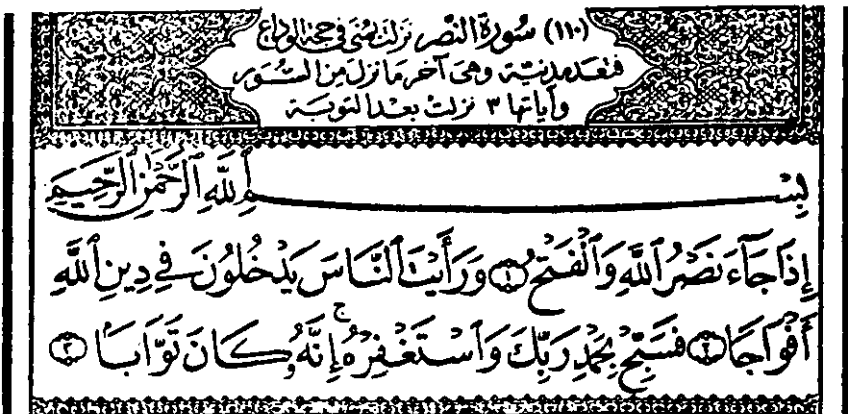 (١١٠) سُورَةُ النَّصْر نزلت بمنى في حجة الوداع
فتعد مدنية وهى آخر ما نزل من السور
وآياتها ٣ نزلت بعد التوبة
بِسْمِ ٱللَّهِ ٱلرَّحْمَٰنِ ٱلرَّحِيمِ
إِذَا جَآءَ نَصْرُ ٱللَّهِ وَٱلْفَتْحُ ١ وَرَأَيْتَ ٱلنَّاسَ يَدْخُلُونَ فِى دِينِ ٱللَّهِ
أَفْوَاجًا ٢ فَسَبِّحْ بِحَمْدِ رَبِّكَ وَٱسْتَغْفِرْهُ ۚ إِنَّهُۥ كَانَ تَوَّابًۢا ٣